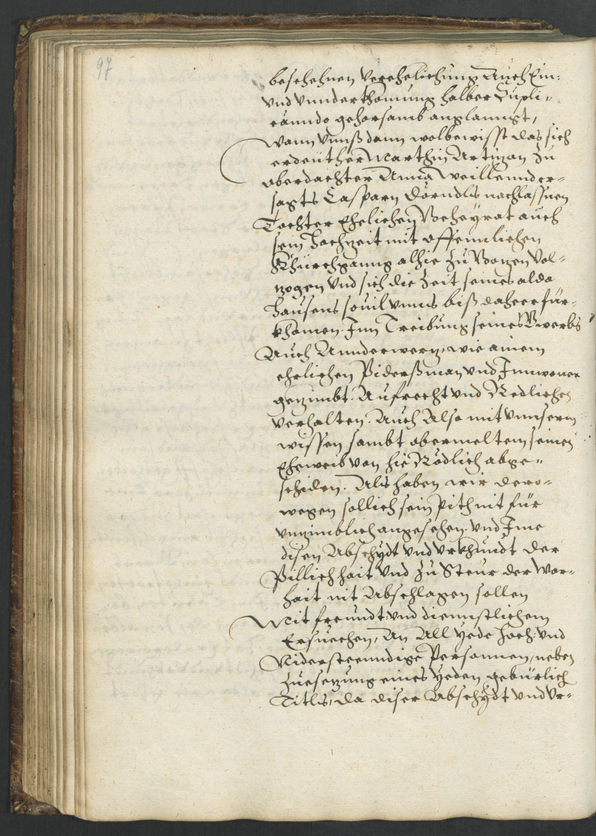 97
beschehnen Verehelichung Auch hin:
und vunderkhomung halber Suppli„
cando gehorsamb anglanngt,
Wann vnnß dann wolbewisst das sich
erdeüther Marthin Artman zu
oberdachter Anna weillennder„
sagts Casparn Dörndls nachlassnen
Tochter Ehelichen Verheyrat auch
sein Hochzeit mit offennlichen
Khürchganng alhie zu Bozen Vol„
zogen vnd sich die Zeit seines alda
Hausens souil vnnß biß daheer für„
khomen. Inn Treibung seines Gwerbs
Auch Annderwern, wie ainem
ehelichen Pidersman vnd Innwoner
gezimbt. Aufrecht vnd Redlichen
Verhalten. Auch Also mit vnnserm
wissen sambt obermeltem seinem
Eheweib von hie Rödlich abge„
schiden. Als haben wir dero„
wegen sollich sein Pith nit für
vnzimblich angesehen. vnd Ime
disen Abschydt vnd vrkhundt der
Pillichhait vnd zu Steur der War„
hait nit Abschlagen sollen
Mit freundt vnd diennstlichem
Ersuechen, An All Yede Hoch: vnd
Niderstenndige Personnen, neben
Zuesezung eines Yeden gebürlich
Titls, da diser Abschydt vnd vr„